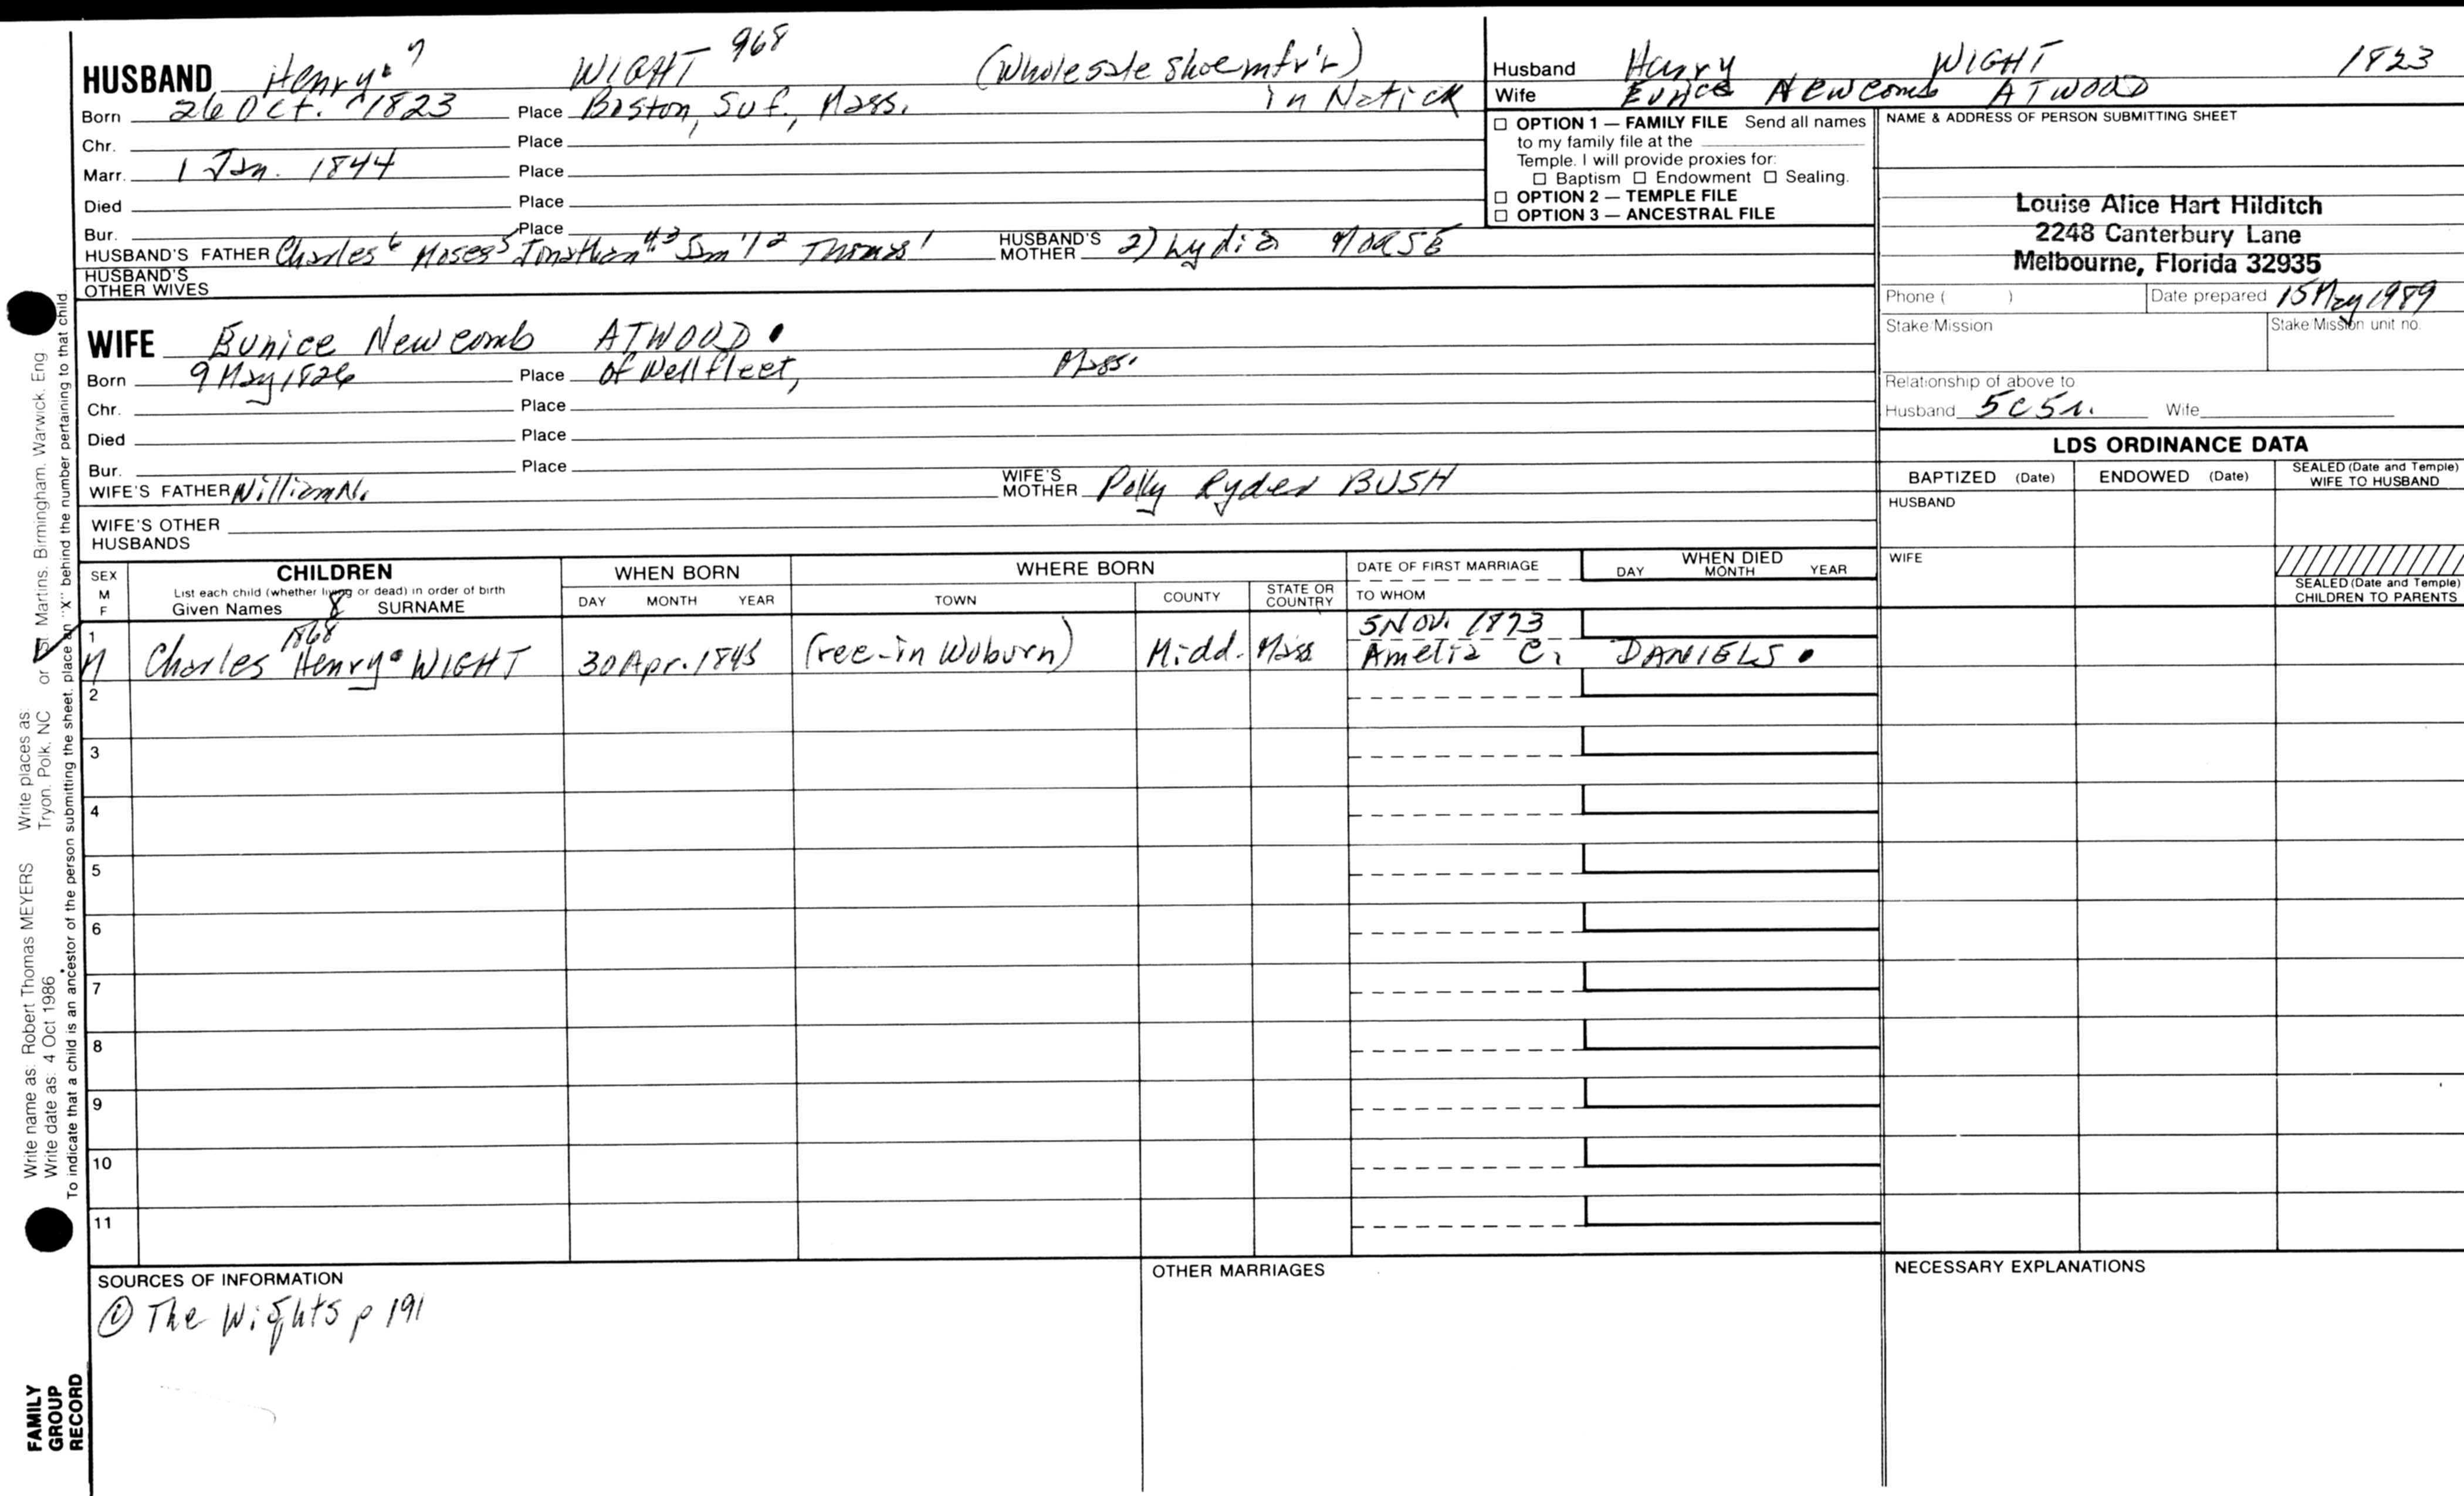 HUSBAND Henry 7 WIGHT 968 (Wholesale shoe mfr'r)
in Natick
Born 26 Oct. 1823 Place Boston, Suf., Mass.
Chr. Place
Marr. 1 Jan. 1844 Place
Died Place
Bur. Place
HUSBAND'S FATHER Charles 6 Moses 5 Jonathan 4,3 Sam'l 2 Thomas 1 HUSBAND'S MOTHER 2) Lydia MORSE
HUSBAND'S OTHER WIVES
WIFE Eunice Newcomb ATWOOD
Born 9 May 1826 Place of Wellfleet, Mass.
Chr. Place
Died Place
Bur. Place
WIFE'S FATHER William N. WIFE'S MOTHER Polly Ryder BUSH
WIFE'S OTHER HUSBANDS
Husband Henry WIGHT 1823
Wife Eunice Newcomb ATWOOD
☐ OPTION 1 — FAMILY FILE Send all names
to my family file at the
Temple. I will provide proxies for:
☐ Baptism ☐ Endowment ☐ Sealing.
☐ OPTION 2 — TEMPLE FILE
☐ OPTION 3 — ANCESTRAL FILE
NAME & ADDRESS OF PERSON SUBMITTING SHEET
Louise Alice Hart Hilditch
2248 Canterbury Lane
Melbourne, Florida 32935
Phone ( ) Date prepared 15 May 1989
Stake/Mission Stake/Mission unit no.
Relationship of above to
Husband 5C5r. Wife
LDS ORDINANCE DATA
BAPTIZED (Date) ENDOWED (Date) SEALED (Date and Temple) WIFE TO HUSBAND
HUSBAND
WIFE
SEALED (Date and Temple)
CHILDREN TO PARENTS
SEX M F
CHILDREN
List each child (whether living or dead) in order of birth
Given Names 8 SURNAME
WHEN BORN
DAY MONTH YEAR
WHERE BORN
TOWN COUNTY STATE OR COUNTRY
DATE OF FIRST MARRIAGE
TO WHOM
WHEN DIED
DAY MONTH YEAR
1 5 Nov. 1873
M Charles Henry WIGHT 1868 30 Apr. 1845 (rec-in Woburn) Midd. Mass Amelia C. DANIELS
2
3
4
5
6
7
8
9
10
11
SOURCES OF INFORMATION
① The Wights p 191
OTHER MARRIAGES
NECESSARY EXPLANATIONS
Write name as: Robert Thomas MEYERS Write places as:
Write date as: 4 Oct 1986 Tryon, Polk, NC or St. Martins, Birmingham, Warwick, Eng.
To indicate that a child is an ancestor of the person submitting the sheet, place an "X" behind the number pertaining to that child.
FAMILY
GROUP
RECORD